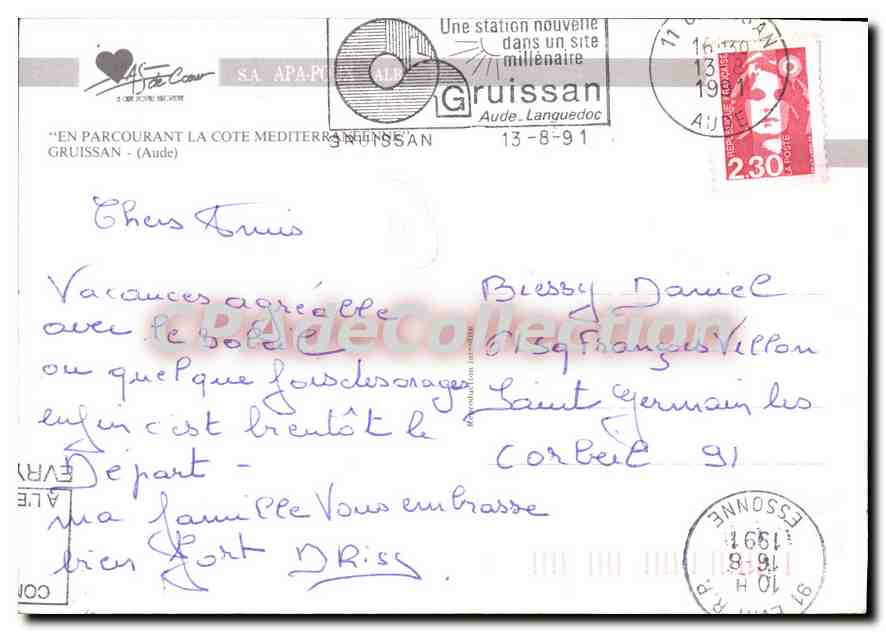 As de Coeur
S.A. APA-POUX ALBI
"EN PARCOURANT LA COTE MEDITERRANEENNE"
GRUISSAN - (Aude)
Une station nouvelle
dans un site
millénaire
Gruissan
Aude-Languedoc
GRUISSAN 13-8-91
11 GRUISSAN
16H30
13-8
1991
AUDE
REPUBLIQUE FRANÇAISE
LA POSTE
2,30
Chers Amis
Vacances agréable
avec le soleil
ou quelque fois des orages
enfin c'est bientôt le
Départ -
ma famille Vous embrasse
bien fort DRiss
Biessy Daniel
61 sq François Villon
Saint Germain les
Corbeil 91
Reproduction interdite
CPAdeCollection
EVRY
A L'E
CON
91 EVRY R.P.
10 H
16-8
1991
ESSONNE